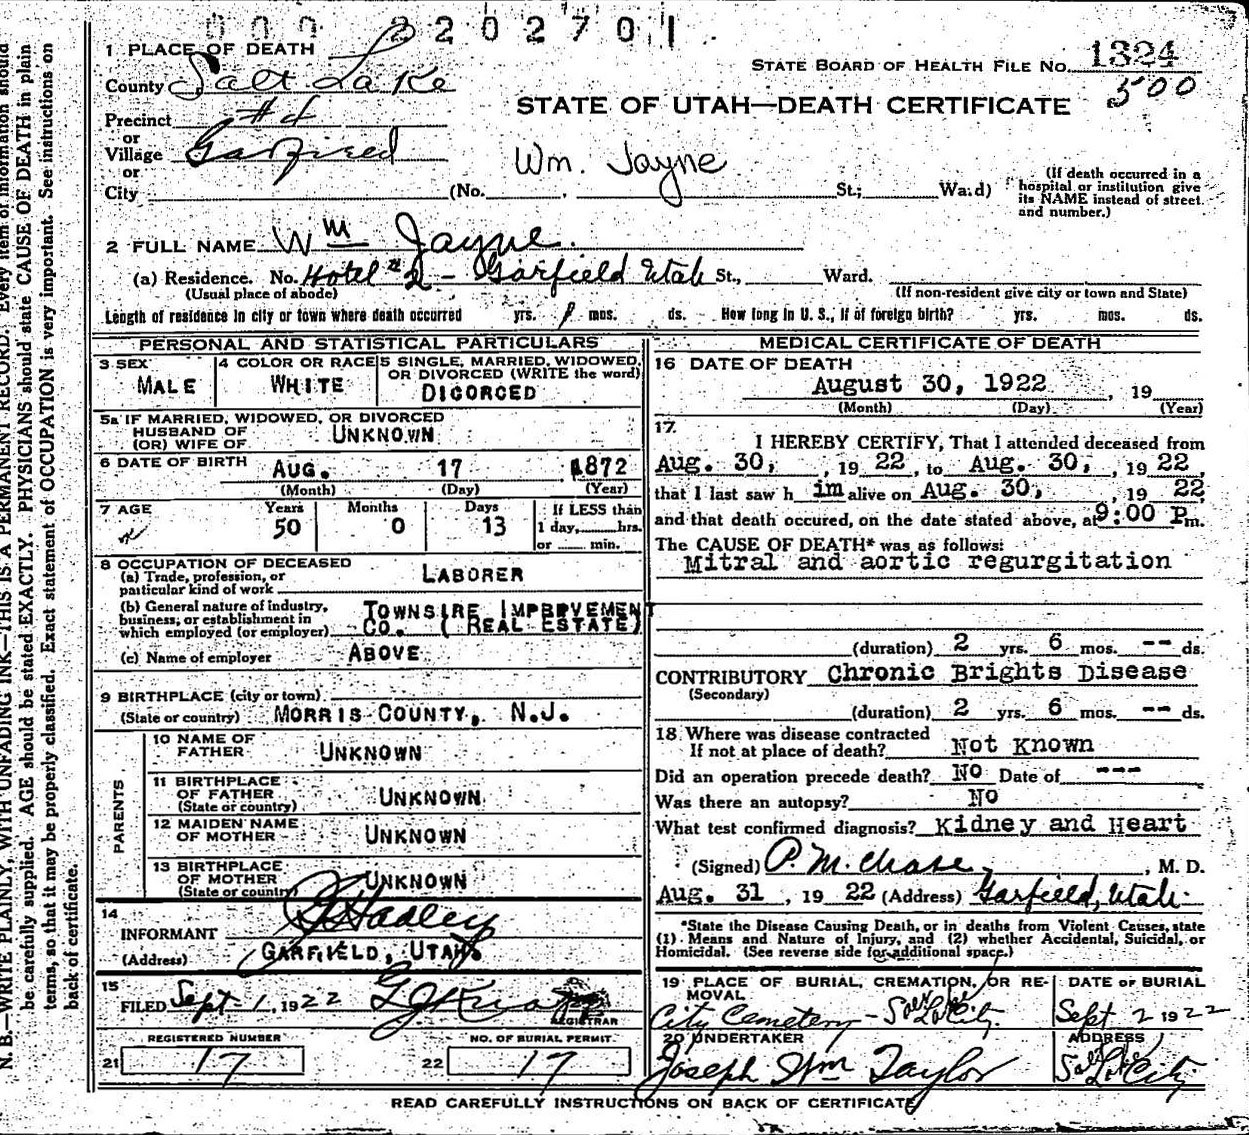 2202701
1 PLACE OF DEATH
STATE BOARD OF HEALTH FILE No. 1324
County Salt Lake
500
STATE OF UTAH—DEATH CERTIFICATE
Precinct #4
or
Village Garfield
Wm. Jayne
or
City (No. , St.; Ward)
(If death occurred in a
hospital or institution give
its NAME instead of street
and number.)
2 FULL NAME Wm Jayne.
(a) Residence. No. Hotel #2 - Garfield Utah St., Ward.
(Usual place of abode) (If non-resident give city or town and State)
Length of residence in city or town where death occurred yrs. mos. ds. How long in U. S., if of foreign birth? yrs. mos. ds.
PERSONAL AND STATISTICAL PARTICULARS
3 SEX
MALE
4 COLOR OR RACE
WHITE
5 SINGLE, MARRIED, WIDOWED,
OR DIVORCED (WRITE the word)
DICORCED
5a IF MARRIED, WIDOWED, OR DIVORCED
HUSBAND OF
(OR) WIFE OF
UNKNOWN
6 DATE OF BIRTH AUG. 17 1872
(Month) (Day) (Year)
7 AGE
Years Months Days If LESS than
50 0 13 1 day, hrs.
or min.
8 OCCUPATION OF DECEASED
(a) Trade, profession, or
particular kind of work
LABORER
(b) General nature of industry,
business, or establishment in
which employed (or employer)
TOWNSIRE IMPBPVEMENT
CO. ( REAL ESTATE)
(c) Name of employer ABOVE
9 BIRTHPLACE (city or town)
(State or country) MORRIS COUNTY, N.J.
PARENTS
10 NAME OF
FATHER UNKNOWN
11 BIRTHPLACE
OF FATHER
(State or country)
UNKNOWN
12 MAIDEN NAME
OF MOTHER UNKNOWN
13 BIRTHPLACE
OF MOTHER
(State or country)
UNKNOWN
14
INFORMANT Hadley
(Address) GARFIELD, UTAH.
15
FILED Sept 1, 1922
REGISTRAR
REGISTERED NUMBER
21 17
NO. OF BURIAL PERMIT
22 17
MEDICAL CERTIFICATE OF DEATH
16 DATE OF DEATH
August 30, 1922 , 19
(Month) (Day) (Year)
17
I HEREBY CERTIFY, That I attended deceased from
Aug. 30, , 19 22, to Aug. 30, , 19 22,
that I last saw h im alive on Aug. 30, , 19 22,
and that death occured, on the date stated above, at 9:00 P m.
The CAUSE OF DEATH* was as follows:
Mitral and aortic regurgitation
(duration) 2 yrs. 6 mos. -- ds.
CONTRIBUTORY Chronic Brights Disease
(Secondary)
(duration) 2 yrs. 6 mos. -- ds.
18 Where was disease contracted
If not at place of death? Not Known
Did an operation precede death? No Date of ---
Was there an autopsy? No
What test confirmed diagnosis? Kidney and Heart
(Signed) P. M. Chase, M. D.
Aug. 31 , 19 22 (Address) Garfield, Utah.
*State the Disease Causing Death, or in deaths from Violent Causes, state
(1) Means and Nature of Injury, and (2) whether Accidental, Suicidal, or
Homicidal. (See reverse side for additional space.)
19 PLACE OF BURIAL, CREMATION, OR RE-
MOVAL
City Cemetery - Salt Lake City.
DATE OF BURIAL
Sept 2 1922
20 UNDERTAKER
Joseph Wm Taylor
ADDRESS
Salt Lake City
READ CAREFULLY INSTRUCTIONS ON BACK OF CERTIFICATE
N. B.—WRITE PLAINLY, WITH UNFADING INK—THIS IS A PERMANENT RECORD. Every item of information should
be carefully supplied. AGE should be stated EXACTLY. PHYSICIANS should state CAUSE OF DEATH in plain
terms, so that it may be properly classified. Exact statement of OCCUPATION is very important. See instructions on
back of certificate.